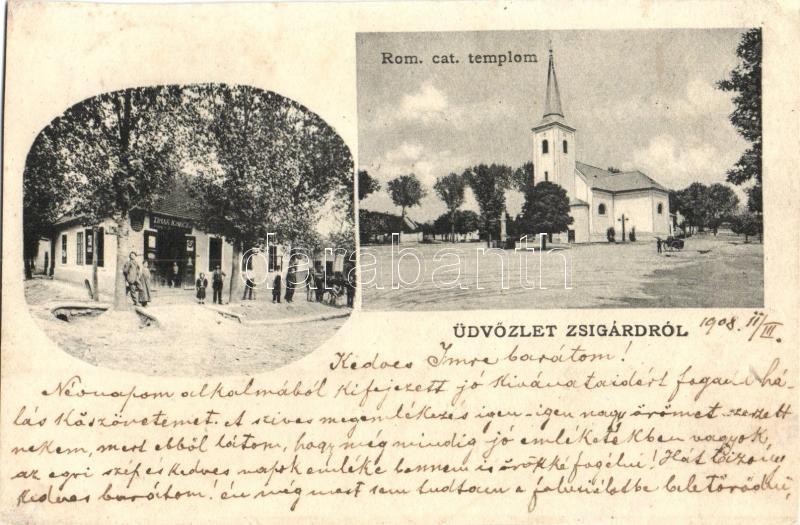 Rom. cat. templom
darabanth
ÜDVÖZLET ZSIGÁRDRÓL
1908. ii/III.
Kedves Imre barátom!
Névnapom alkalmából kifejezett jó kivánataidért fogadd há-
lás köszönetemet. A szives megemlékezés igen-igen nagy örömet szerzett
nekem, mert ebből látom, hogy még mindig jó emléketekben vagyok,
az egri szép és kedves napok emléke bennem is örökké fog élni! Hát
kedves barátom! én még most sem tudtam a falusi életbe beletörődni,